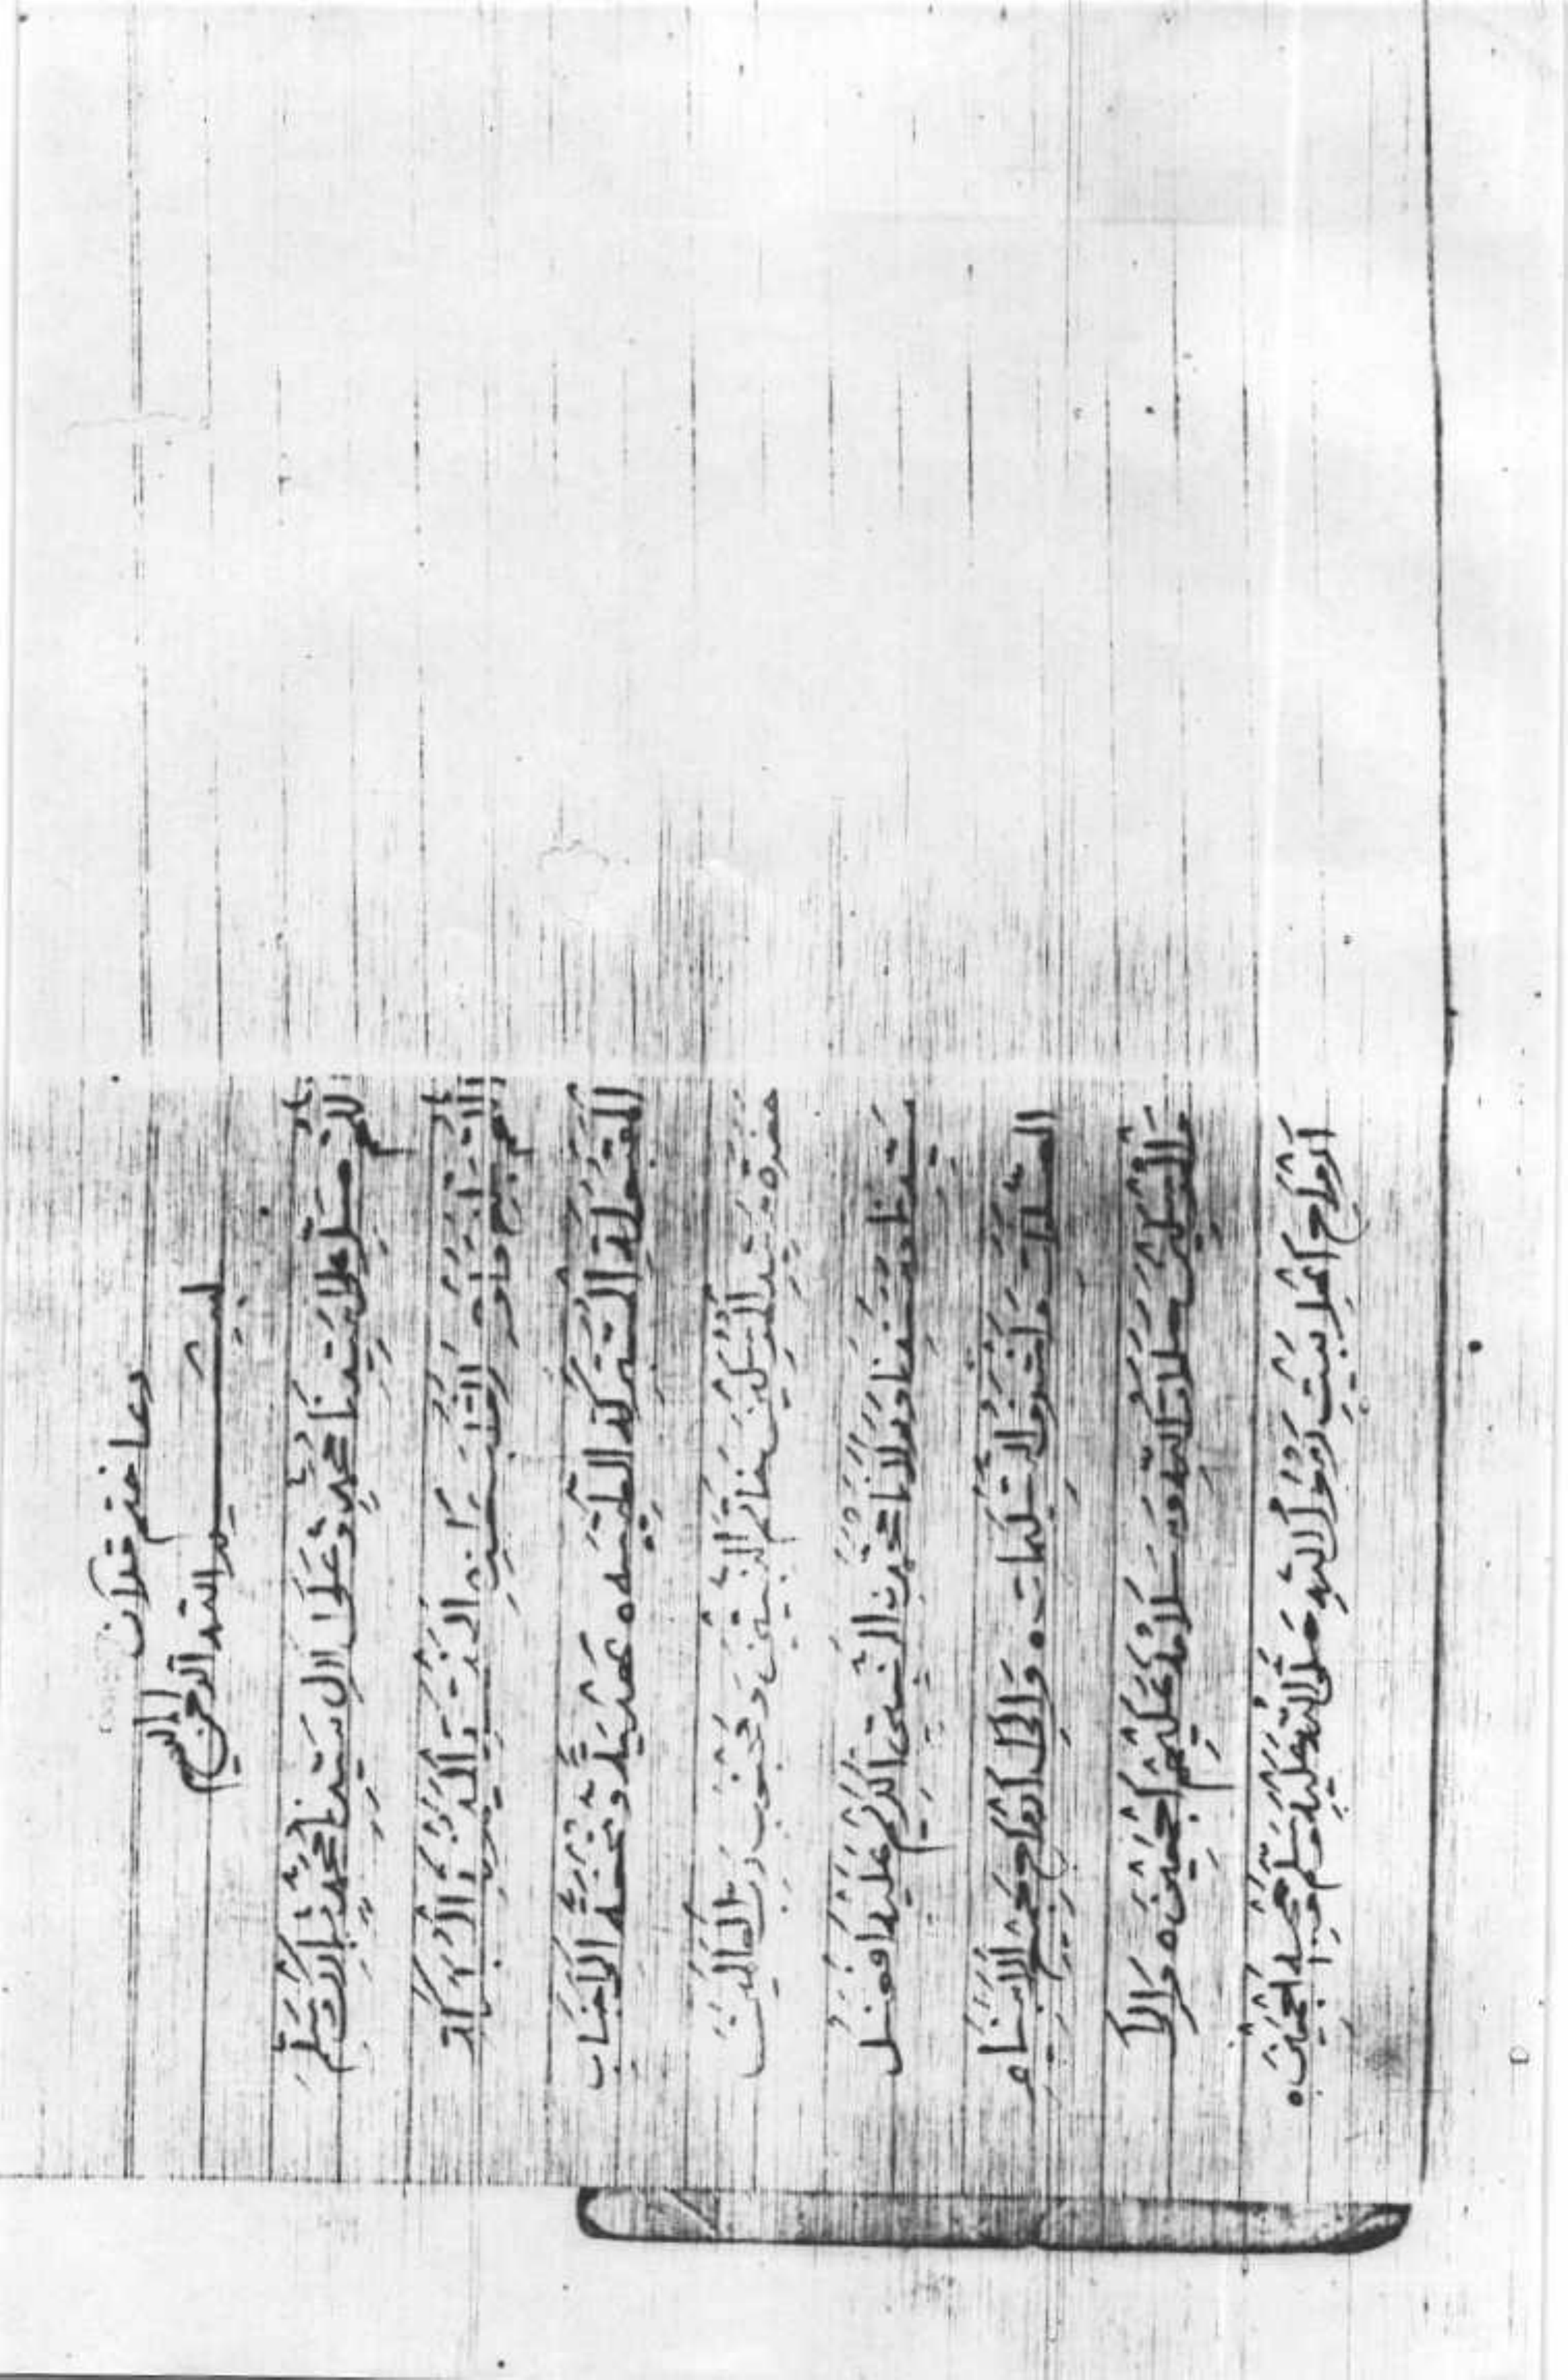 دعا ختم قرآن
بسم الله الرحمن الرحيم
اَللّٰهُمَّ صَلِّ عَلٰى سَيِّدِنَا مُحَمَّدٍ وَعَلٰى اٰلِ سَيِّدِنَا مُحَمَّدٍ وَبَارِكْ وَسَلِّمْ
اَللّٰهُمَّ بَلِّغْ وَاَوْصِلْ
الْمُتَقَبَّلَةَ الْمُتَبَرَّكَةَ الطَّيِّبَةَ ه هَدِيَّةً وَتُحْفَةً اِلٰى جَنَابِ
حَضْرَةِ سَيِّدِ الْمُرْسَلِيْنَ خَاتَمِ النَّبِيِّيْنَ وَمَحْبُوْبِ رَبِّ الْعَالَمِيْنَ
سَيِّدِنَا وَمَوْلَانَا مُحَمَّدِنِ النَّبِيِّ الْكَرِيْمِ عَلَيْهِ اَفْضَلُ
الصَّلَوَاتِ وَاَشْرَفُ التَّسْلِيْمَاتِ ه وَاِلٰى اَرْوَاحِ جَمِيْعِ الْاَنْبِيَاءِ
وَالْمُرْسَلِيْنَ صَلَوَاتُ اللّٰهِ وَسَلَامُهُ عَلَيْهِمْ اَجْمَعِيْنَ ه وَاِلٰى
اَرْوَاحِ اَهْلِ بَيْتِ رَسُوْلِ اللّٰهِ صَلَّى اللّٰهُ عَلَيْهِ وَسَلَّمَ اَجْمَعِيْنَ ه